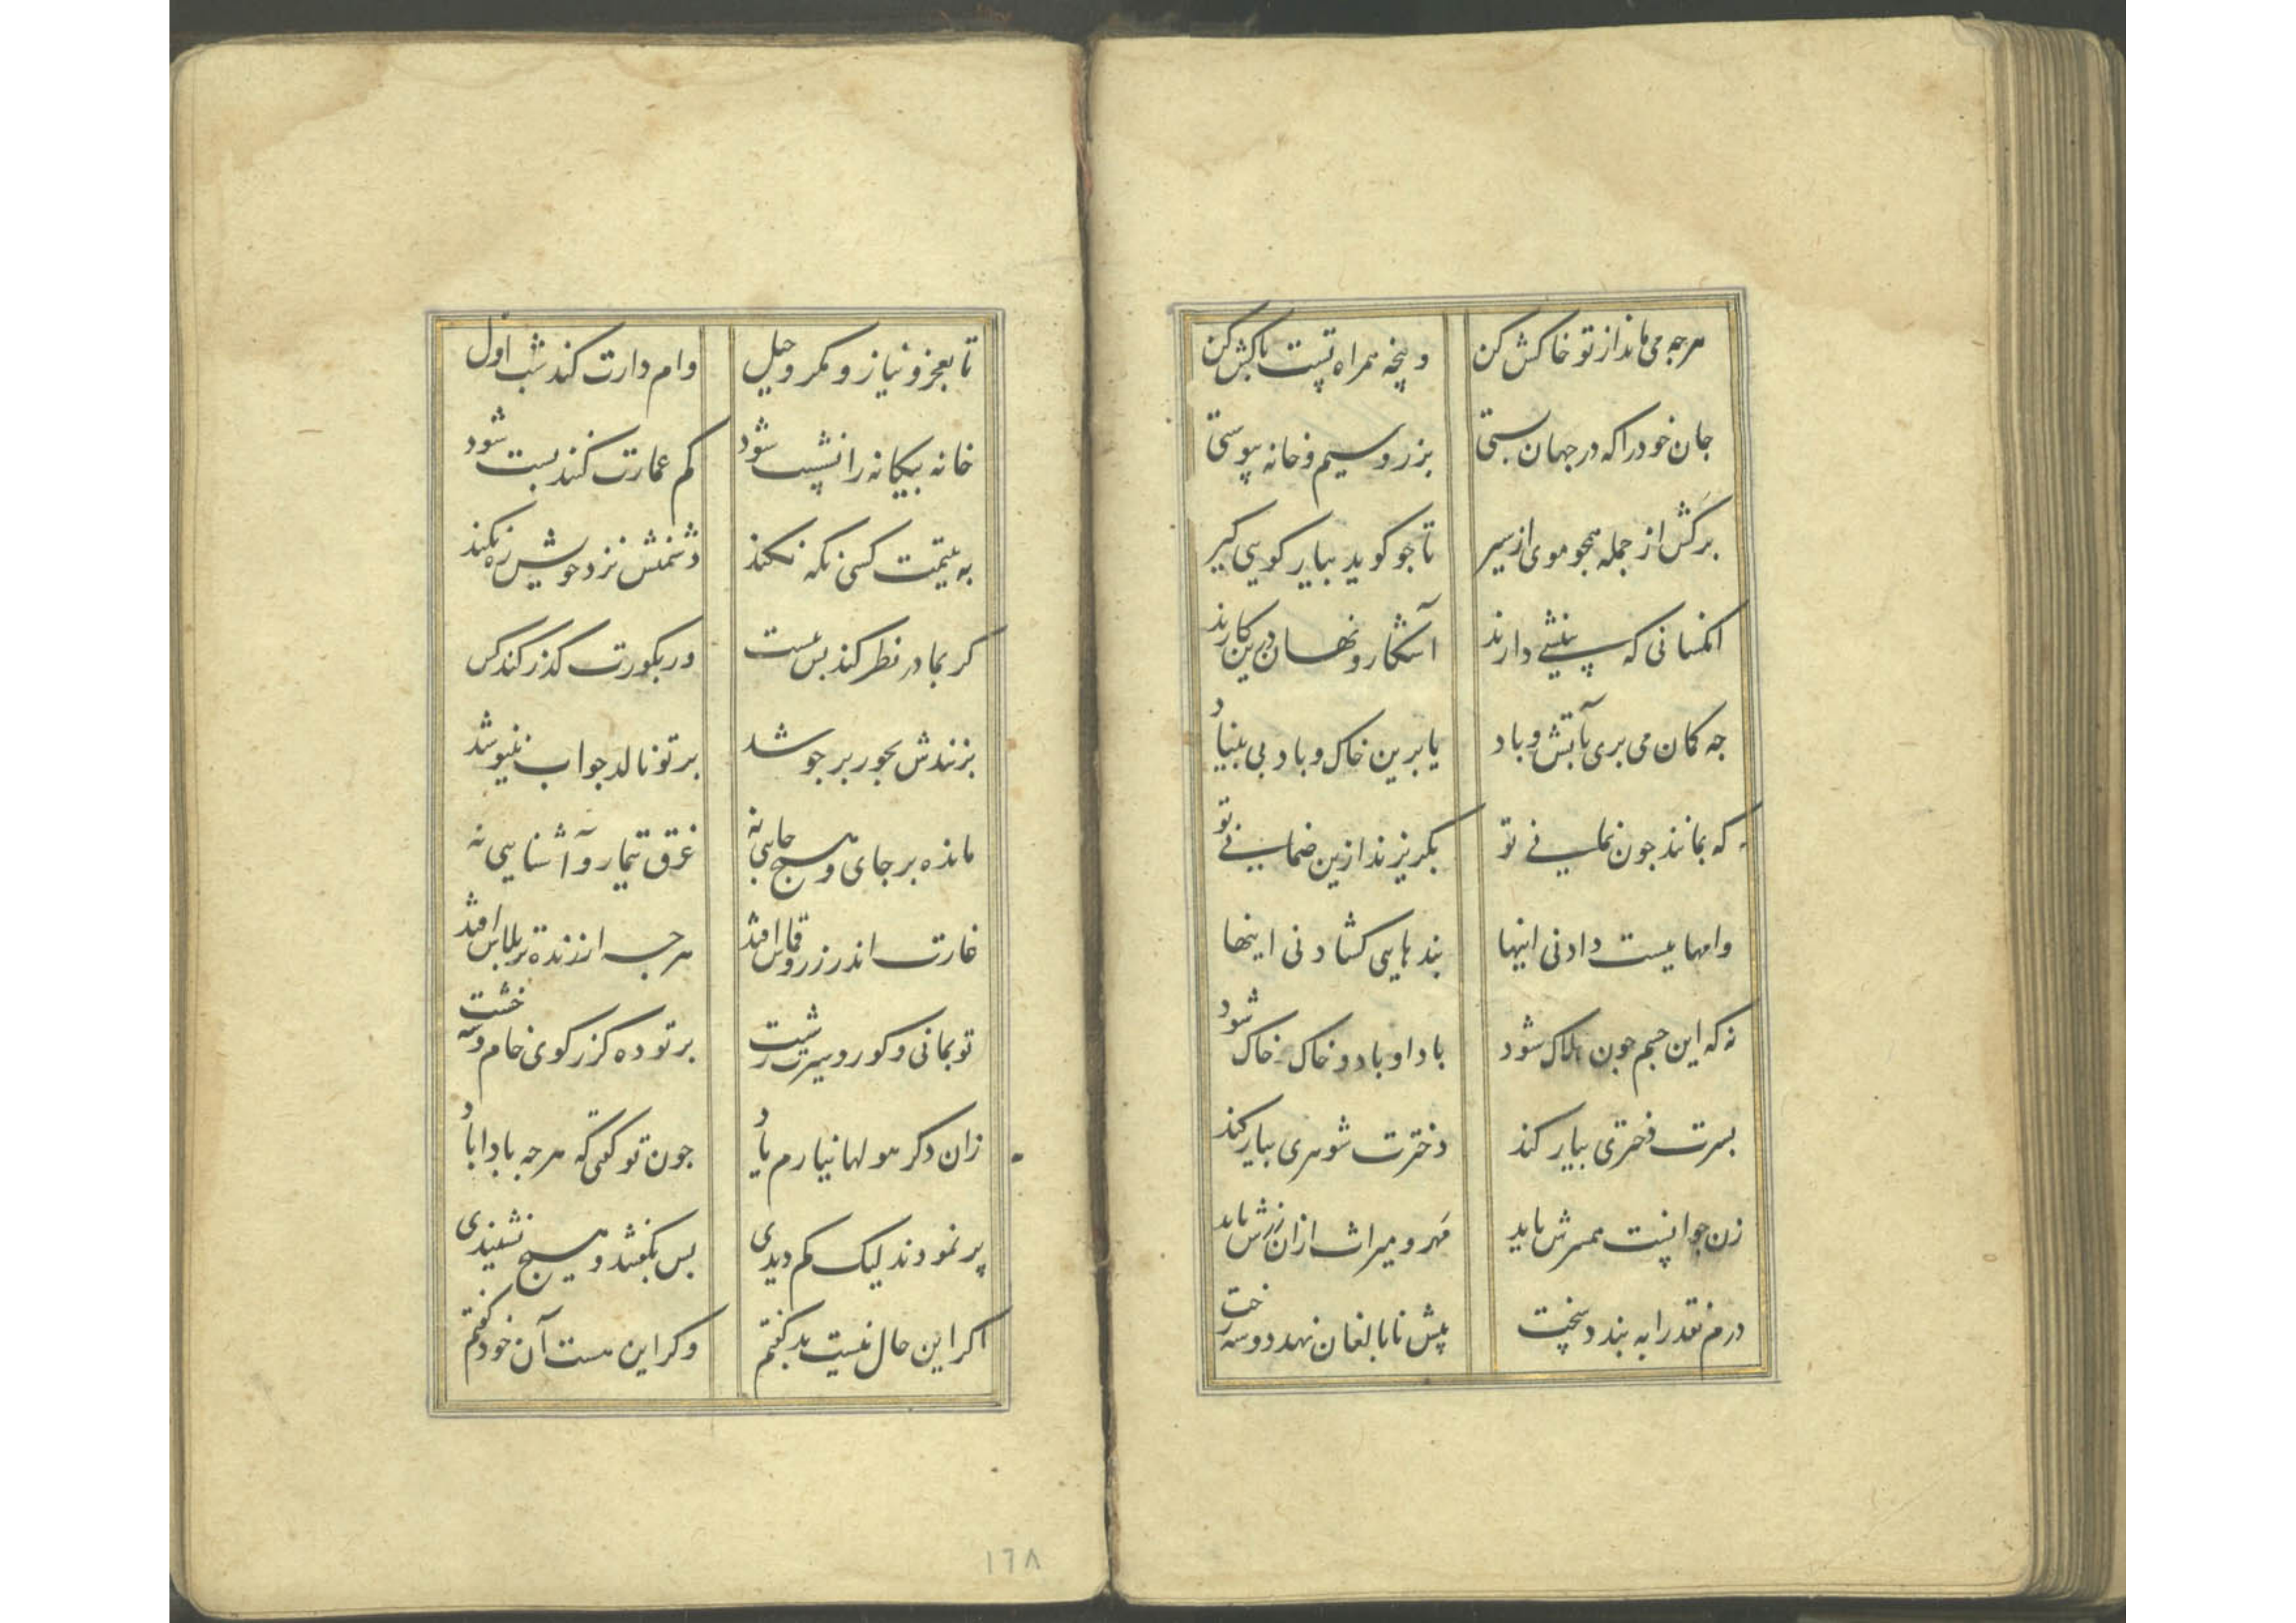 هرجه می ماند از تو خاکش کن وپنجه همراه تست پاکش کن
جان خود را که در جهان بستی بزر و سیم و خانه پیوستی
برکش از جمله همجو موی از سیر تا جو کوید بیار کویی کیر
انکسانی که پیشیی دارند آشکار و نهان درین کارند
جه کمان می بری بآتش و باد یا برین خاک و باد بی بنیاد
که بمانند جون نمانی تو بکریزند ازین ضمانی تو
وامهاییست دادنی اینها بندهایی کشادنی اینها
نه که این جسم جون هلاک شود باد او باد و خاک خاک شود
بسرت دختری بیار کند دخترت شوهری بیار کند
زن جوانست همسرش باید مهر و میراث ازان زرش باید
درم نقد را به بندد سخت پیش نابالغان نهد دو سه رخت
تا بعجز و نیاز و مکر و حیل وام دارت کند شب اول
خانه بیکانه را نشست شود کم عمارت کنند بست شود
به یتیمت کسی نکه نکند دشمنش نزد خویش ره نکند
کر بمادر نظر کند بس نیست ور بکورت کذر کند کس
بزنندش بجور برجوشد بر تو نالد جواب ننیوشد
مانده بر جای و هیج جایی نه غرق تیمار و آشنایی نه
غارت اندر زر و قماش افتد هرجه ارزنده تر بلاش افتد
تو بمانی و کور و سیرت زشت بر تو ده کز رکوی خام و سه خشت
زان دکر هولها نیارم یاد جون تو کفتی که هرجه بادا باد
پر نمودند لیک کم دیدی بس بکفتند و هیج نشنیدی
اکر این حال نیست بد کفتم وکر این هست آن خود کفتم
١٦٨